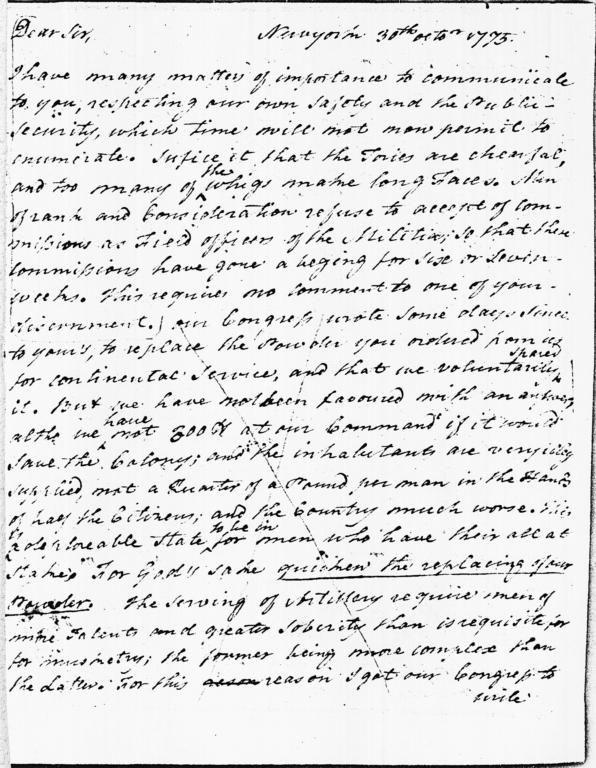 Dear Sir, Newyork 30th octor 1775.
I have many matters of importance to communicate
to you, respecting our own safety and the Public
Security, which time will not now permit to
enumerate. Sufice it, that the Tories are chearful,
and too many of the whigs make long Faces. Men
of rank and Consideration refuse to accept of Com-
missions as Field officers of the Militia; so that these
Commissions have gone a beging for Six or Seven
weeks. This requires no comment to one of your
discernment. our Congress wrote some days since
to yours, to replace the Powder you ordered from us
for continental Service, and that we voluntarily spared
it. But we have not been favoured with an answer,
altho we have not 300 lb at our Command if it would
save the Colony; and the inhabitants are very illy
supplied, not a Quarter of a Pound per man in the Hands
of half the Citizens; and the Country much worse. This
a deploreable State to be in for men who have their all at
Stake. For God's sake quicken the replacing of our
Powder. The Serving of Artillery require men of
more Talents and greater Sobriety than is requisite for
for musketry; the former being more complex than
the Latter. For this reason I got our Congress to
write